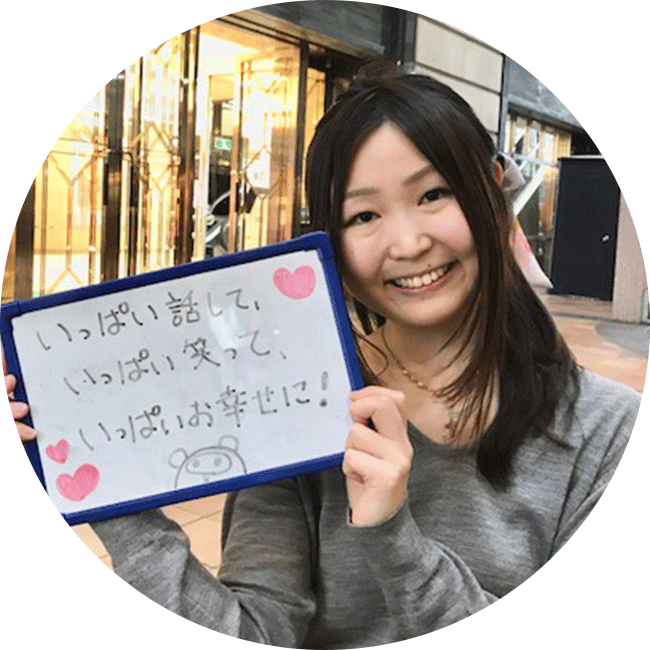 いっぱい話して、
いっぱい笑って、
いっぱいお幸せに!